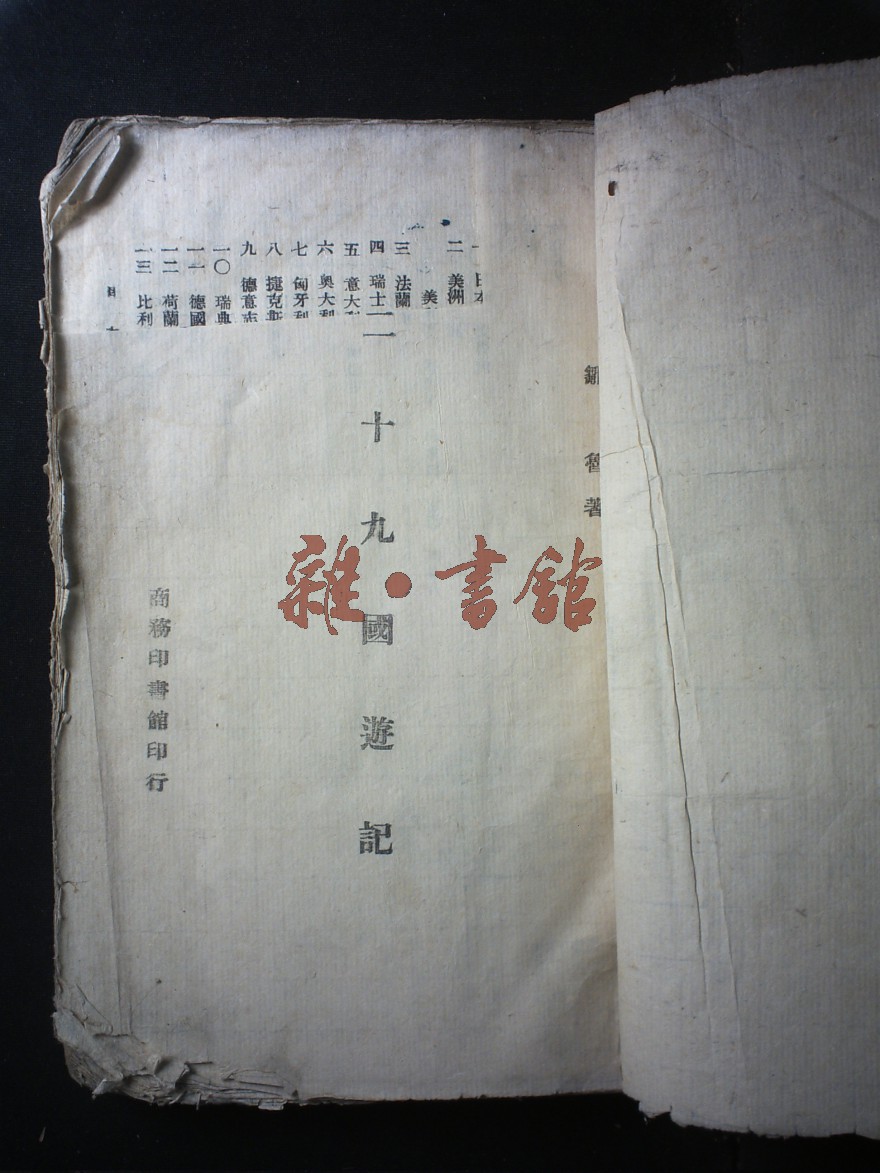 鄒魯著
一 日本
二 美洲
美
三 法蘭
四 瑞士
五 意大利
六 奧大利
七 匈牙利
八 捷克斯
九 德意志
一〇 瑞典
一一 德國
一二 荷蘭
一三 比利
目
二十九國遊記
商務印書館印行
雜·書館